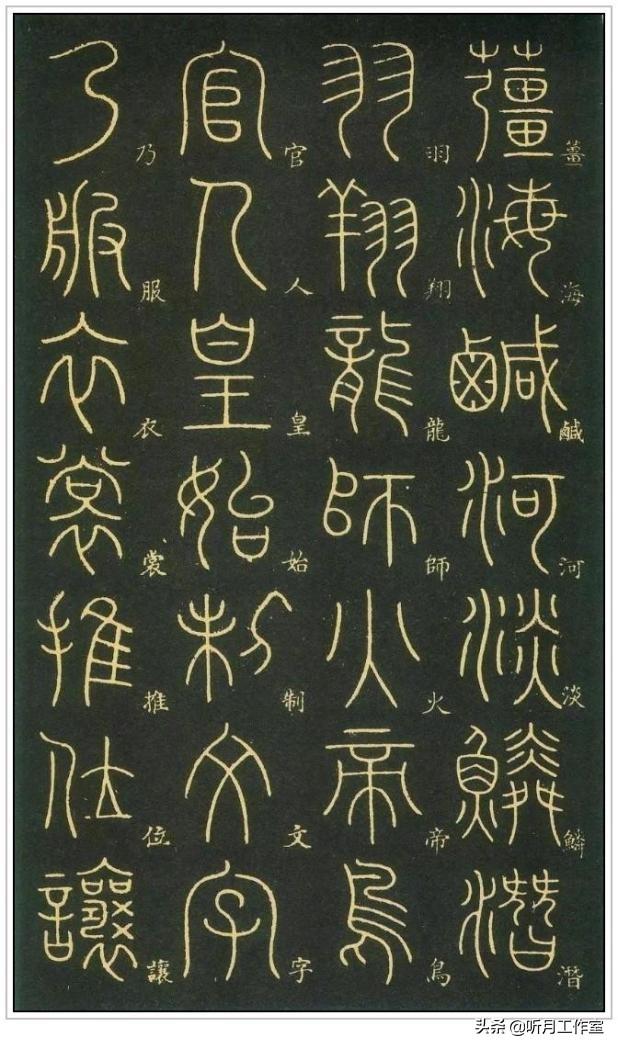 薑海鹹河淡鱗潛
羽翔龍師火帝鳥
官人皇始制文字
乃服衣裳推位讓
头条 @听月工作室